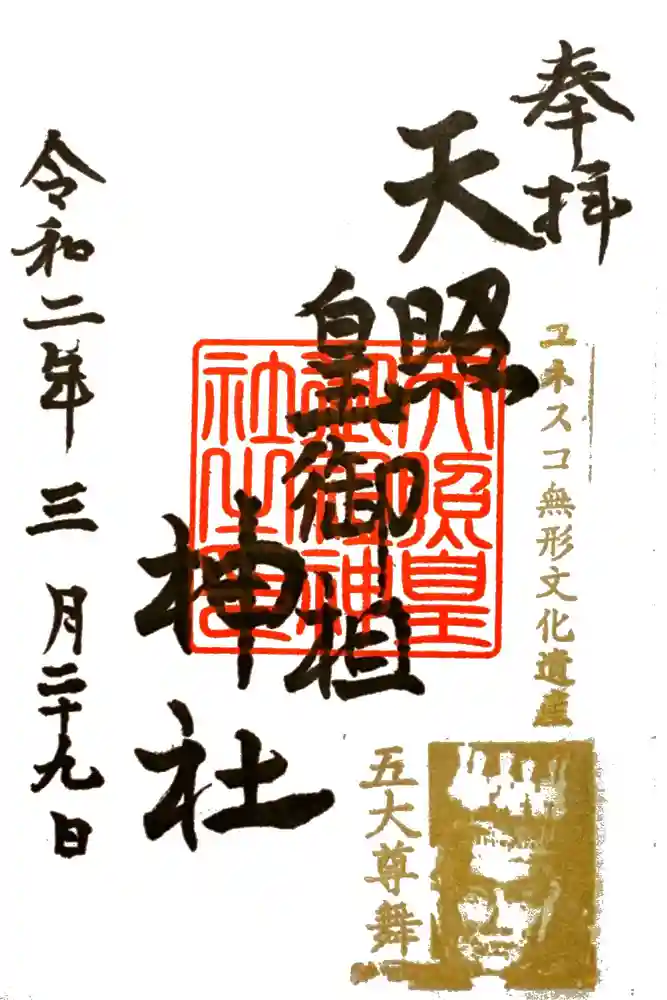 奉拝
ユネスコ無形文化遺産
五大尊舞
天照
皇御祖
神社
天照皇
御祖神
社之印
令和二年三月二十九日